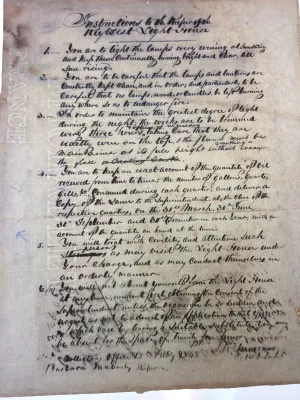 Instructions to the Keeper of the
Key West Light House
1. You are to light the lamps every evening at Sunsetting
and keep them continually burning bright and clear, till
Sun rising.
2. You are to be careful that the lamps and lanterns are
Constantly kept clean, and in order; and particularly to be
Careful that no lamps, wood, or candles be left burning
any where so as to endanger fire.
3. In order to maintain the greatest degree of light
during the night, the wicks are to be trimmed
every three hours, taking Care that they are
exactly even on the top, & the flame must be
maintained as to full height without
the glass or smoke
4. You are to keep an exact account of the quantity of oil
received from time to time; the number of gallons, quarts,
Gills, &c. Consumed during each quarter; and deliver a
Copy of the Same to the Superintendent, at the close of the
respective quarters, on the 31st March, 30th June,
30th September and 31st December in each Year; with an
account of the quantity on hand at the time.
5. You will treat with Civility and attention such
as may visit the Light House under
Your Charge, and as may Conduct themselves in
an orderly manner.
6. You will not absent yourself from the Light House
at any time, without first obtaining the Consent of the
Superintendent, unless the occasion be so sudden and
urgent as not to admit of an application to that officer;
in which case by leaving a suitable Substitute you may
be absent for the Space of twenty four hours.
Collectors Office
Barbara Mabrity Keeper